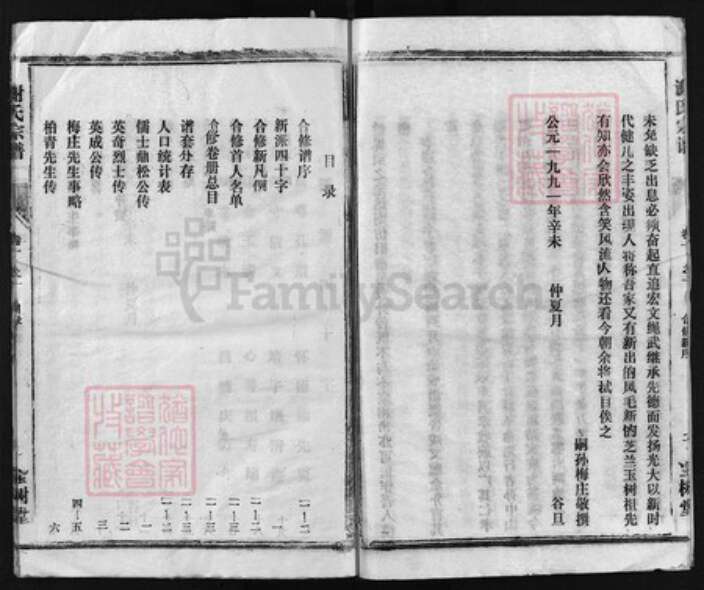 未免缺乏出息必须奋起直追宏文绳武继承先德而发扬光大以新时
代健儿之丰姿出现人将称吾家又有新出的凤毛新的芝兰玉树祖先
有知亦会欣然含笑风流人物还看今朝余将拭目俟之
嗣孙梅庄敬撰
公元一九九一年辛未 仲夏月 谷旦
目录
合修谱序 一—二
新派四十字 一
合修新凡例 一—二
合修首人名单 一—三
合修卷册总目 一—三
谱套外存 二—三
人口统计表 一—二
儒士勷松公传 一
英奇烈士传 二
英成公传 三
梅庄先生事略 四—五
柏青先生传 六
谢氏宗谱
谢氏宗谱
宝树堂
宝树堂
FamilySearch